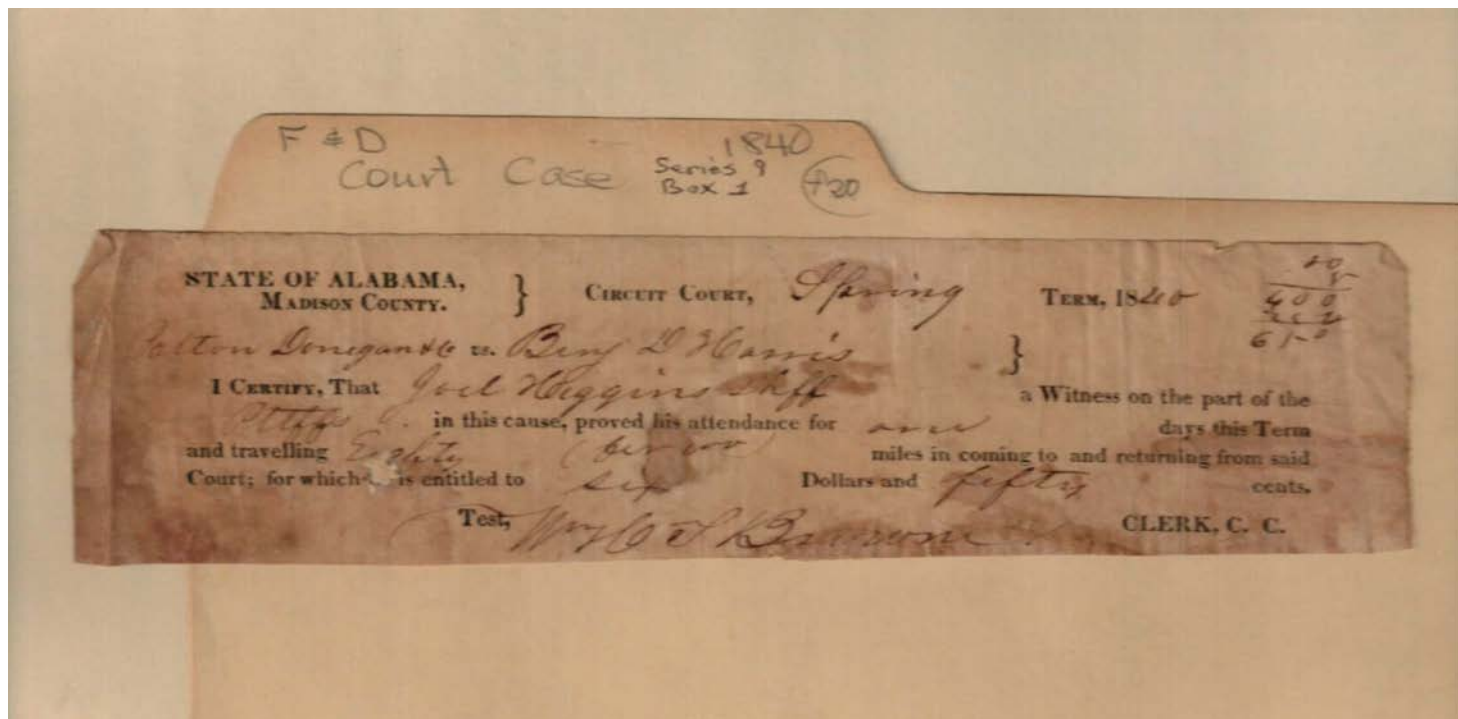 F & D 1840
Court Case Series 9
Box 1 F20
STATE OF ALABAMA,
MADISON COUNTY. } CIRCUIT COURT, Spring TERM, 1840
40
5
400
6 50
Donegan & Co vs. Benj D Harris }
I CERTIFY, That Joel Higgins a Witness on the part of the
in this cause, proved his attendance for one days this Term
and travelling Eighty miles in coming to and returning from said
Court; for which is entitled to six Dollars and fifty cents.
Test, CLERK, C. C.